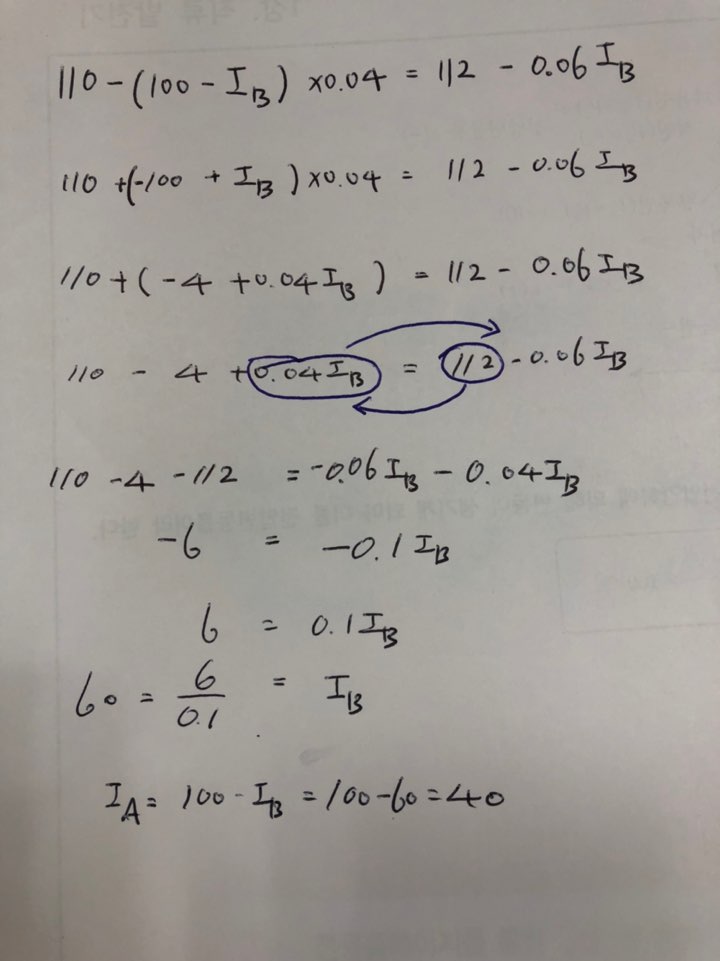 110 - (100 - I_B) ×0.04 = 112 - 0.06 I_B
110 +(-100 + I_B) ×0.04 = 112 - 0.06 I_B
110 + ( -4 +0.04 I_B ) = 112 - 0.06 I_B
110 - 4 + 0.04 I_B = 112 - 0.06 I_B
110 -4 -112 = -0.06 I_B - 0.04 I_B
-6 = -0.1 I_B
6 = 0.1 I_B
60 = 6/0.1 = I_B
I_A = 100 - I_B = 100-60 = 40